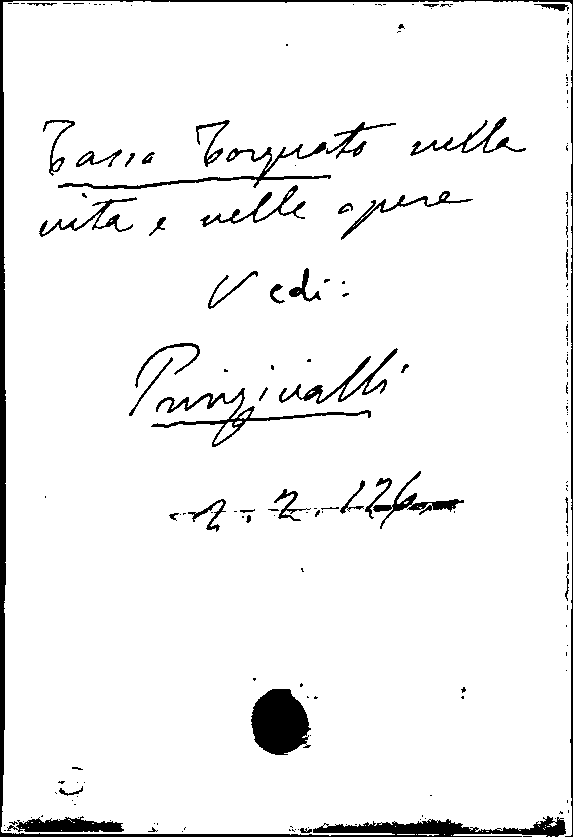 Tasso Torquato nella
vita e nelle opere
Vedi:
Prinzivalli
2. 2. 126.